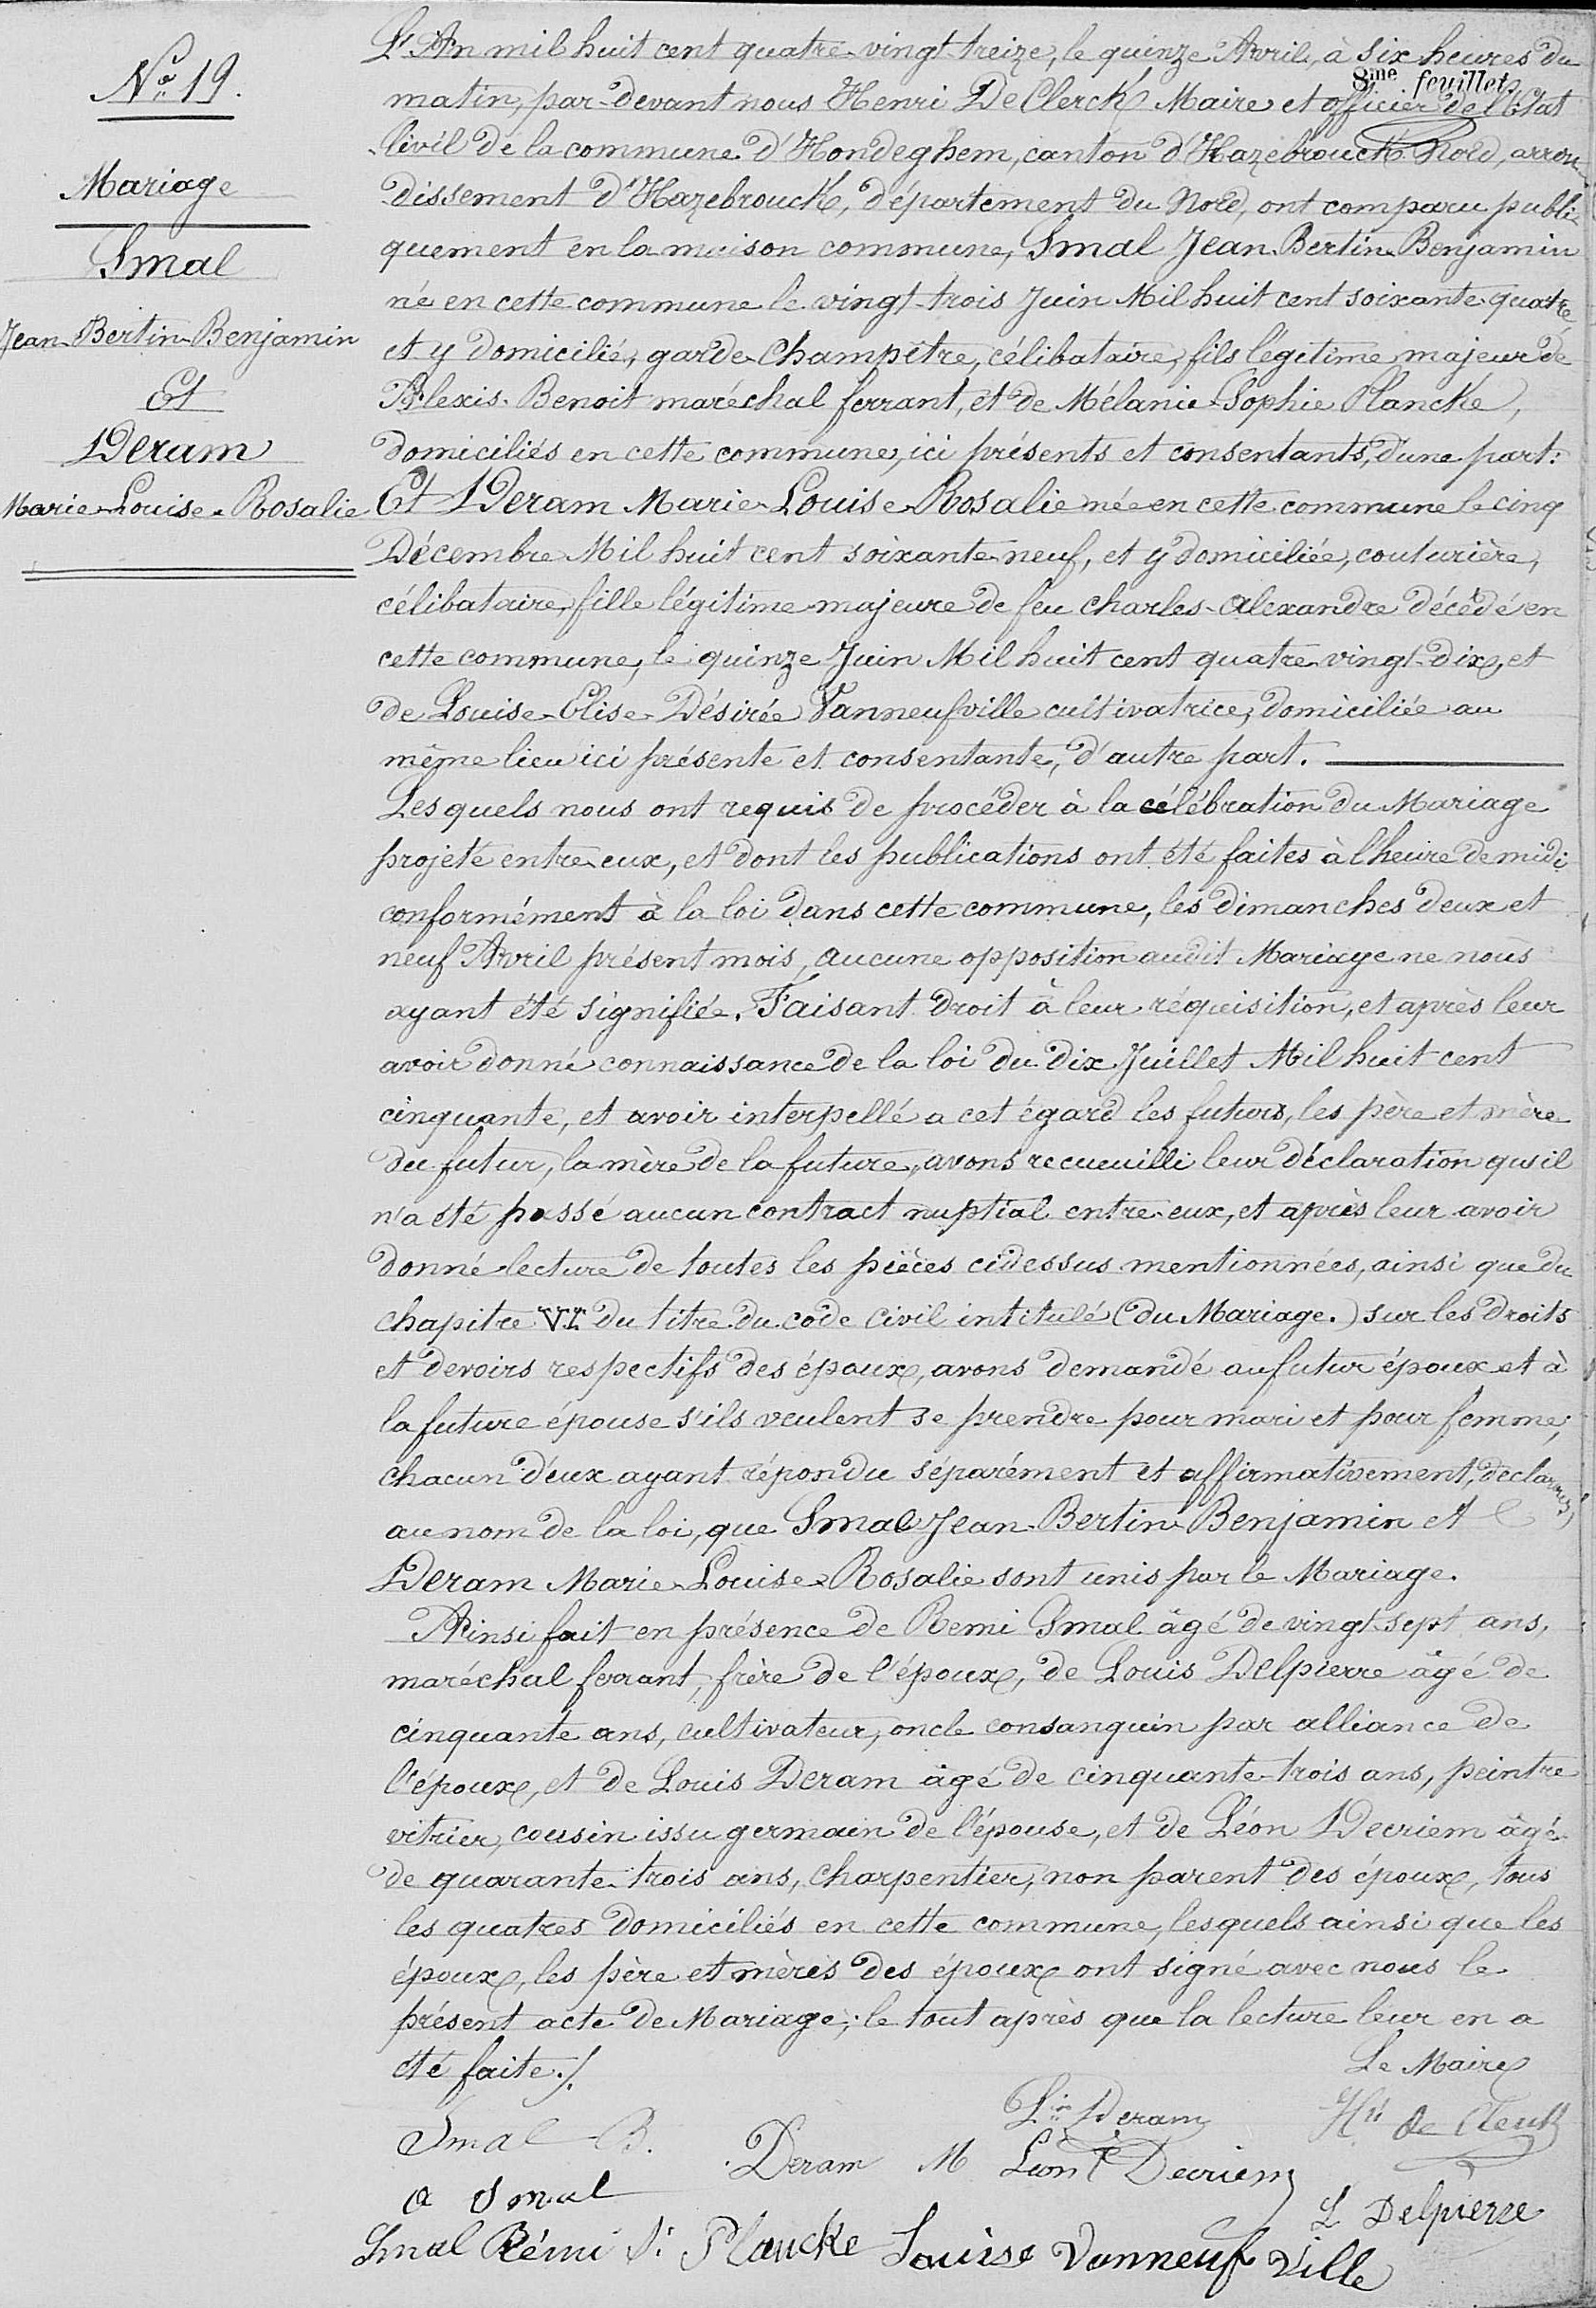 No 19.
Mariage
Smal
Jean-Bertin-Benjamin
Et
Deram
Marie-Louise-Rosalie
8me feuillet
L'An mil huit cent quatre-vingt-treize, le quinze Avril, à six heures du
matin, par-devant nous Henri De Clerck Maire et officier de l'Etat
Civil de la commune d'Hondeghem, canton d'Hazebrouck Nord, arron
dissement d'Hazebrouck, département du Nord, ont comparu publi-
quement en la maison commune, Smal Jean-Bertin-Benjamin
né en cette commune le vingt-trois Juin Mil huit cent soixante-quatre
et y domicilié, garde-Champêtre, célibataire, fils légitime majeur de
Alexis-Benoit maréchal ferrant, et de Mélanie-Sophie Plancke,
domiciliés en cette commune, ici présents et consentants, d'une part:
Et Deram Marie-Louise-Rosalie née en cette commune le cinq
Décembre Mil huit cent soixante-neuf, et y domiciliée, couturière,
célibataire, fille légitime majeure de feu Charles-Alexandre décédé en
cette commune, le quinze Juin Mil huit cent quatre-vingt-dix, et
de Louise-Elise-Désirée Vanneufville cultivatrice, domiciliée au
même lieu ici présente et consentante, d'autre part.
Lesquels nous ont requis de procéder à la célébration du Mariage
projeté entre eux, et dont les publications ont été faites à l'heure de midi
conformément à la loi dans cette commune, les dimanches deux et
neuf Avril présent mois, aucune opposition audit Mariage ne nous
ayant été signifiée. Faisant droit à leur réquisition, et après leur
avoir donné connaissance de la loi du dix Juillet Mil huit cent
cinquante, et avoir interpellé a cet égard les futurs, les père et mère
du futur, la mère de la future, avons recueuilli leur déclaration qu'il
n'a été passé aucun contract nuptial entre-eux, et après leur avoir
donné lecture de toutes les pièces cidessus mentionnées, ainsi que du
chapitre VI du titre du code civil intitulé (du Mariage.) sur les droits
et devoirs respectifs des époux, avons demandé au futur époux et à
la future épouse s'ils veulent se prendre pour mari et pour femme;
chacun d'eux ayant répondu séparément et affirmativement, déclarons,
au nom de la loi, que Smal Jean-Bertin-Benjamin et
Deram Marie-Louise-Rosalie sont unis par le Mariage.
Ainsi fait en présence de Remi Smal âgé de vingt-sept ans,
maréchal ferrant, frère de l'époux, de Louis Delpierre âgé de
cinquante ans, cultivateur, oncle consanguin par alliance de
l'époux, et de Louis Deram âgé de cinquante-trois ans, peintre
vitrier, cousin issu germain de l'épouse, et de Léon Decriem âgé
de quarante-trois ans, charpentier, non parent des époux, tous
les quatres domiciliés en cette commune, lesquels ainsi que les
époux, les père et mères des époux ont signé avec nous le
présent acte de Mariage; le tout après que la lecture leur en a
été faite./.
Le Maire
Smal B. Deram M Lis Deram Hri de Clerck
a Smal Léon Decriem L Delpierre
Smal Rémi S. Plancke Louise Vanneufville